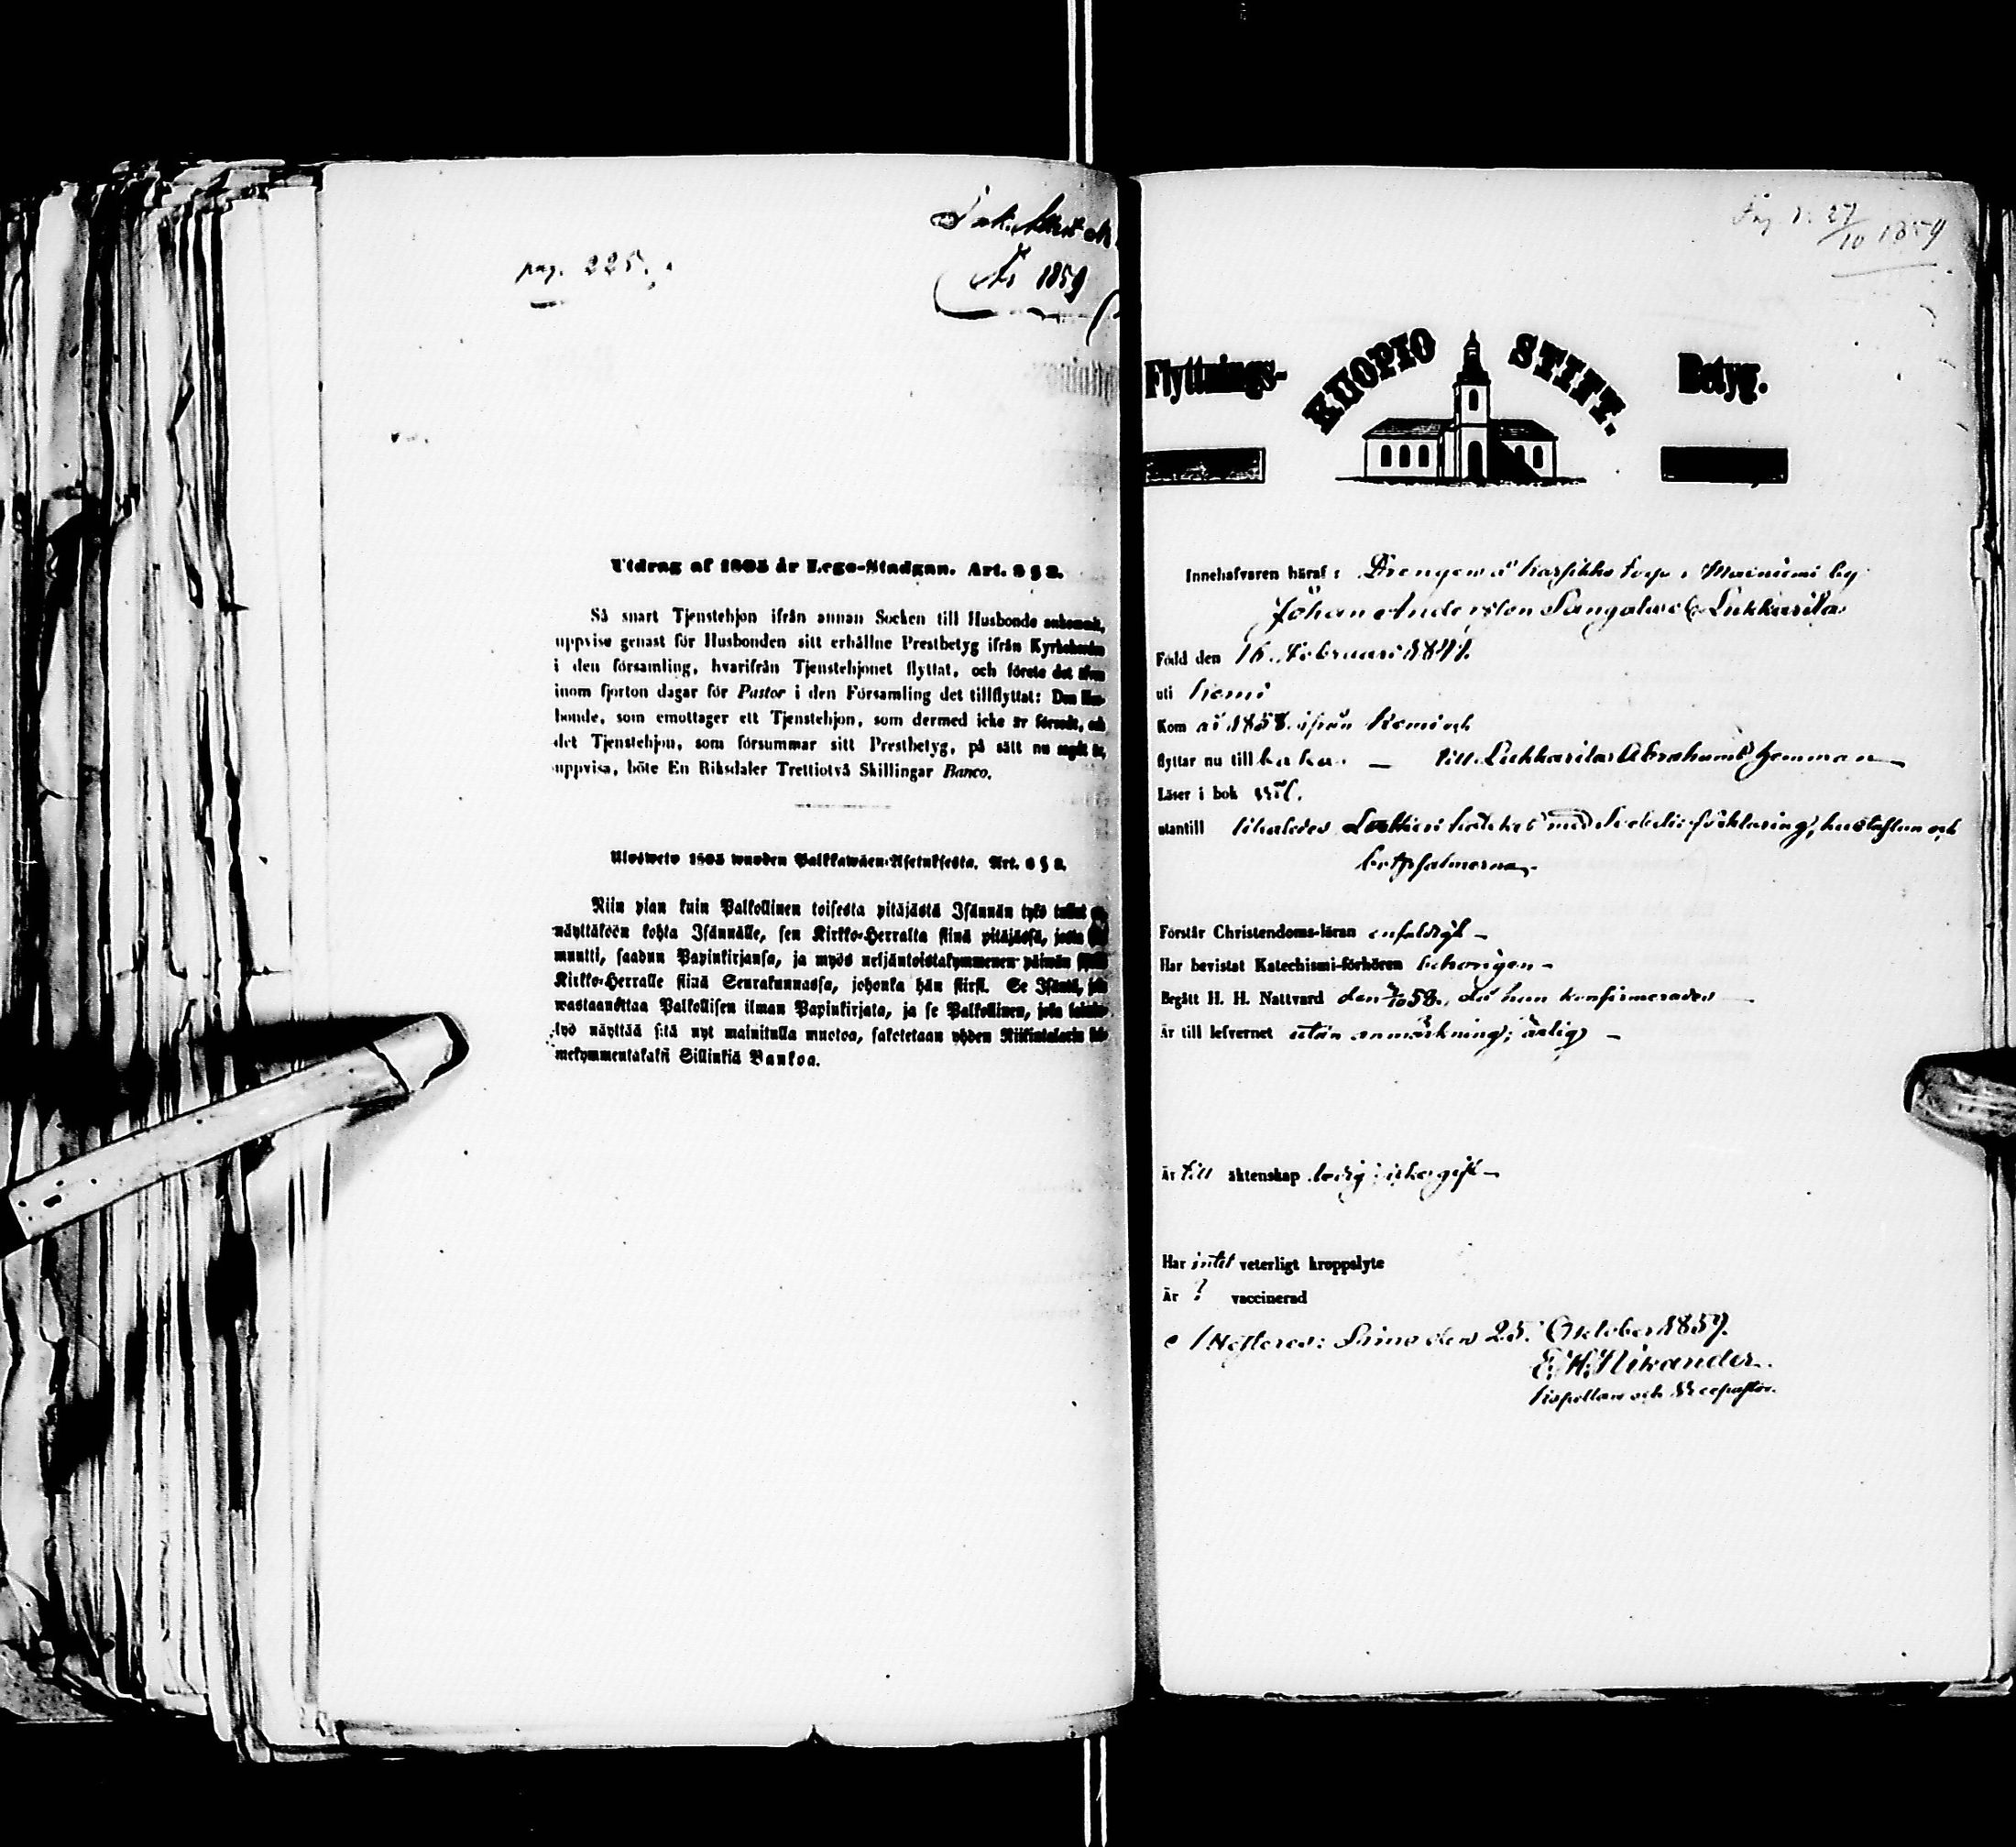 pag. 225.
År 1859
Utdrag af 1805 år Lego-Stadgan. Art. 3 § 2.
Så snart Tjenstehjon ifrån annan Socken till Husbonde ankommit,
uppvise genast för Husbonden sitt erhållne Prestbetyg ifrån Kyrkoherden
i den församling, hvarifrån Tjenstehjonet flyttat, och förete det äfven
inom fjorton dagar för Pastor i den Församling det tillflyttat: Den Hus-
bonde, som emottager ett Tjenstehjon, som dermed icke är försedt, och
det Tjenstehjon, som försummar sitt Prestbetyg, på sätt nu sagdt är,
uppvisa, böte En Riksdaler Trettiotvå Skillingar Banco.
Ulosweto 1805 wuoden Palkkawäen-Asetuksesta. Art.
Niin pian kuin Palkollinen toisesta pitäjästä Isännän tykö tullut
näyttäköön kohta Isännälle, sen Kirkko-Herralta siinä pitäjässä, josta
muutti, saadun Papinkirjansa, ja myös neljäntoistakymmenen päiwän
Kirkko-Herralle siinä Seurakunnassa, johonka hän siirsi. Se Isäntä, joka
wastaanottaa Palkollisen ilman Papinkirjata, ja se Palkollinen, joka laimin-
lyö näyttää sitä nyt mainitulla muotoa, sakotetaan yhden Riikintalarin kol-
mekymmentäkaksi Sillinkiä Bankoa.
27/10 1859
Flyttnings- KUOPIO STIFT. Betyg.
Innehafvaren häraf: Drengen å Karsikko torp i Maininiemi by
Johan Andersson Sangalas Lukkarila
Född den 16. Februari 1841.
uti Kemi
Kom år 1858 ifrån Kemi och
flyttar nu till — till Lukkarila Abrahams hemman —
Läser i bok väl.
utantill Lutheri kateket med förklaring, hustaflan och
botpsalmerna.
Förstår Christendoms-läran enfaldigt —
Har bevistat Katechismi-förhören behörigen —
Begått H. H. Nattvard den 58., då han konfirmerades —
Är till lefvernet utan anmärkning; ärlig —
Är till äktenskap ledig; icke gift —
Har intet veterligt kroppslyte
Är ? vaccinerad
Attesteras: Simo den 25. October 1859.
E. H. Nikander.
Kapellan och Vicepastor.